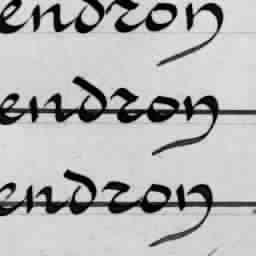 endron
endron
endron